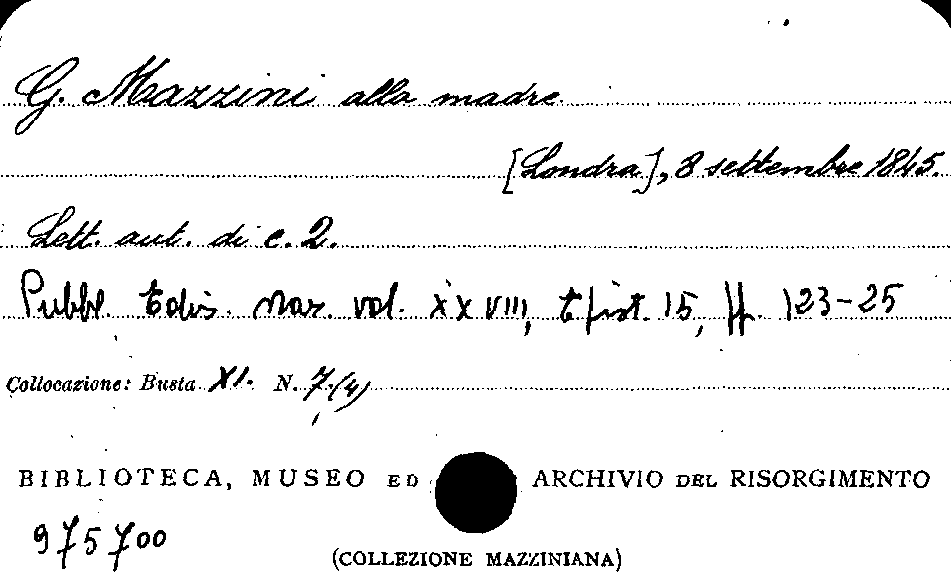 G. Mazzini alla madre
[Londra], 8 settembre 1845.
Lett. aut. di c. 2.
Pubbl. Ediz. naz. vol. XXVIII, Epist. 15, pp. 123-25
Collocazione: Busta XI. N. 7.(4)
BIBLIOTECA, MUSEO ED ARCHIVIO DEL RISORGIMENTO
975700
(COLLEZIONE MAZZINIANA)